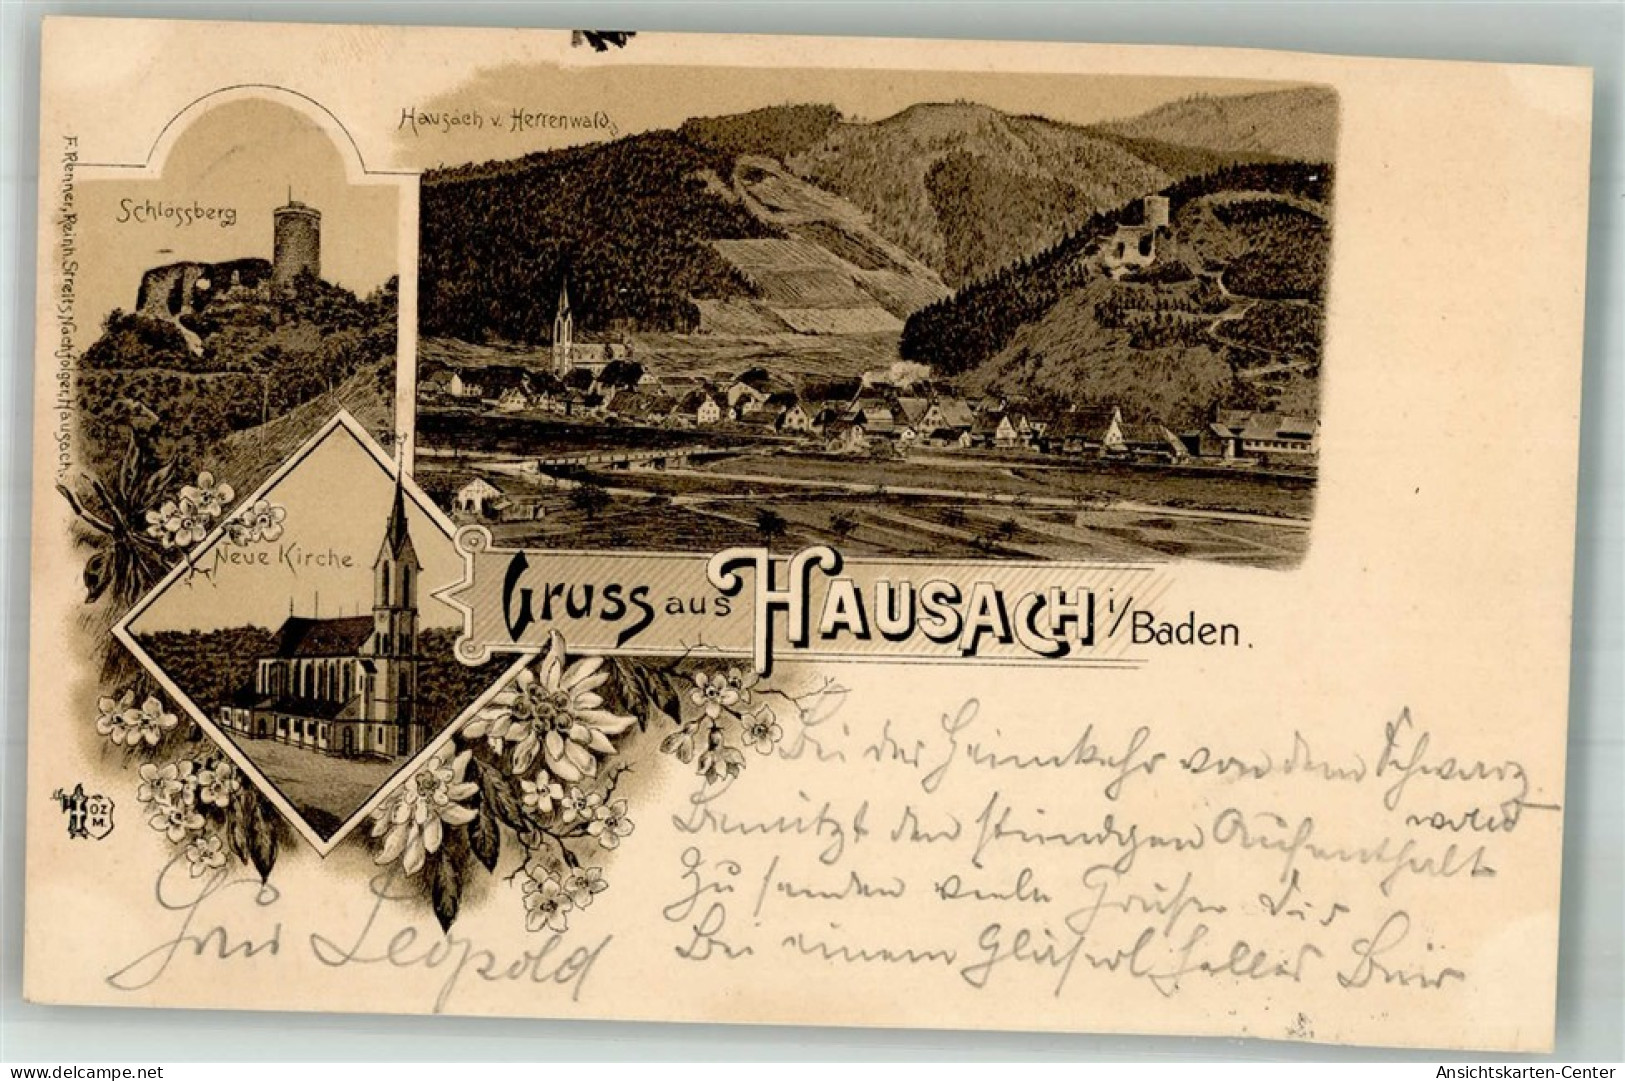 Hausach v. Herrenwald
Schlossberg
F. Renner, Reinh. Streits Nachfolger, Hausach.
Neue Kirche
Gruss aus HAUSACH i/Baden.
OZ
M.
Bei der Heimkehr von dem Schwarz
wald
Benützt den stündigen Aufenthalt
Zu senden viele Grüße Dir
Bei einem Gläserl helles Bier
Leopold
www.ansichtskartenhandel.de
Ansichtskarten-Center